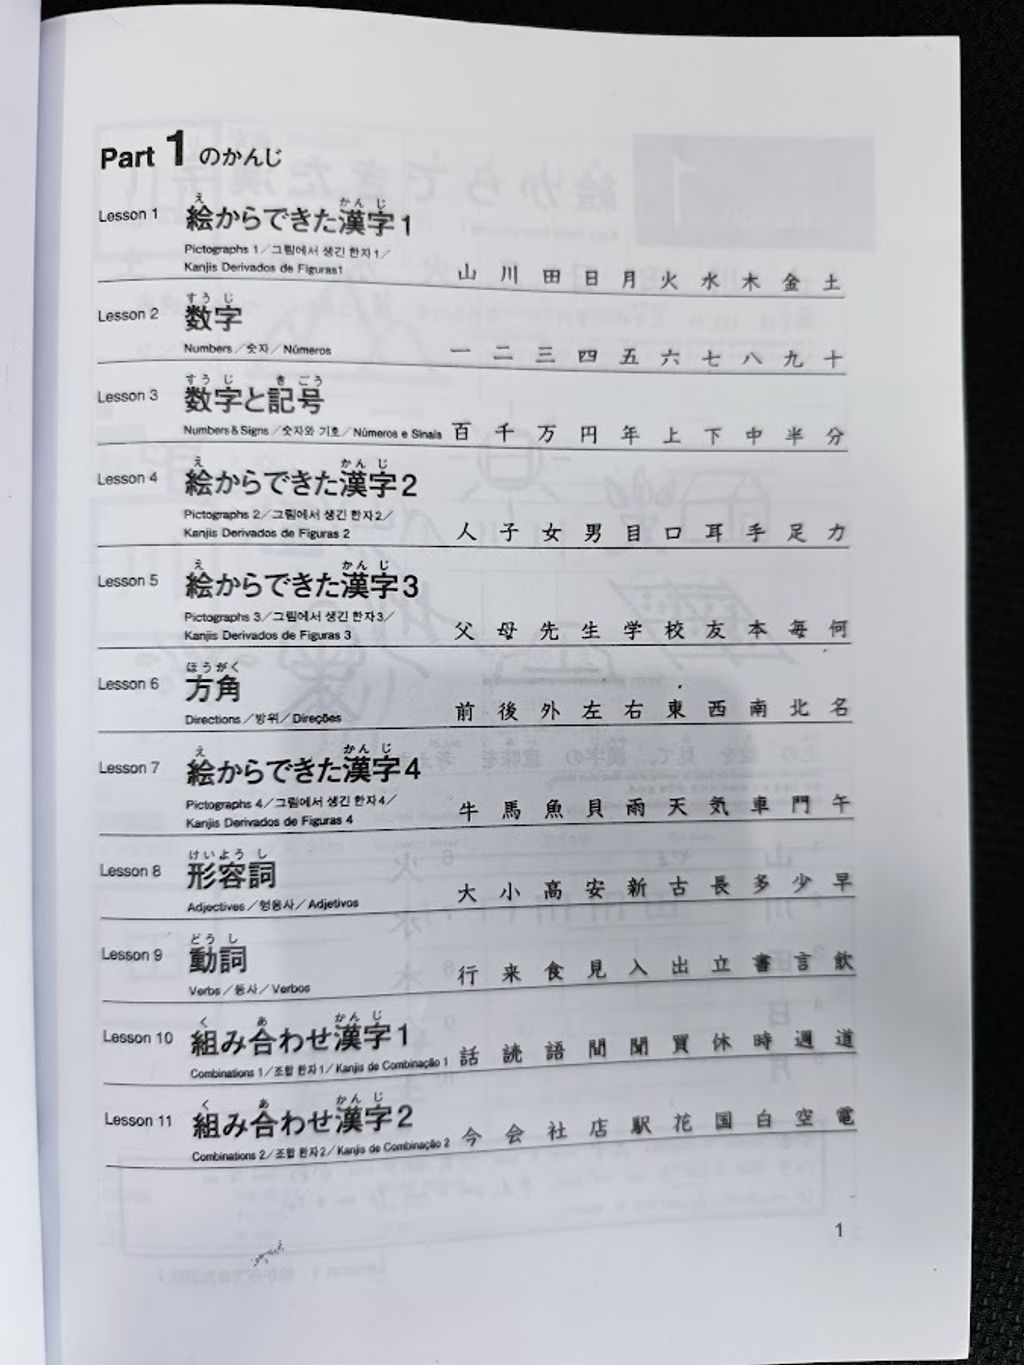 Part 1 のかんじ
Lesson 1
え かん じ
絵からできた漢字1
Pictographs 1／그림에서 생긴 한자1／
Kanjis Derivados de Figuras1
山 川 田 日 月 火 水 木 金 土
Lesson 2
すう じ
数字
Numbers／숫자／Números
一 二 三 四 五 六 七 八 九 十
Lesson 3
すう じ き ごう
数字と記号
Numbers & Signs／숫자와 기호／Números e Sinais
百 千 万 円 年 上 下 中 半 分
Lesson 4
え かん じ
絵からできた漢字2
Pictographs 2／그림에서 생긴 한자2／
Kanjis Derivados de Figuras 2
人 子 女 男 目 口 耳 手 足 力
Lesson 5
え かん じ
絵からできた漢字3
Pictographs 3／그림에서 생긴 한자3／
Kanjis Derivados de Figuras 3
父 母 先 生 学 校 友 本 毎 何
Lesson 6
ほうがく
方角
Directions／방위／Direções
前 後 外 左 右 東 西 南 北 名
Lesson 7
え かん じ
絵からできた漢字4
Pictographs 4／그림에서 생긴 한자4／
Kanjis Derivados de Figuras 4
牛 馬 魚 貝 雨 天 気 車 門 午
Lesson 8
けいよう し
形容詞
Adjectives／형용사／Adjetivos
大 小 高 安 新 古 長 多 少 早
Lesson 9
どう し
動詞
Verbs／동사／Verbos
行 来 食 見 入 出 立 書 言 飲
Lesson 10
く あ かん じ
組み合わせ漢字1
Combinations 1／조합 한자1／Kanjis de Combinação 1
話 読 語 間 聞 買 休 時 週 道
Lesson 11
く あ かん じ
組み合わせ漢字2
Combinations 2／조합 한자2／Kanjis de Combinação 2
今 会 社 店 駅 花 国 白 空 電
1